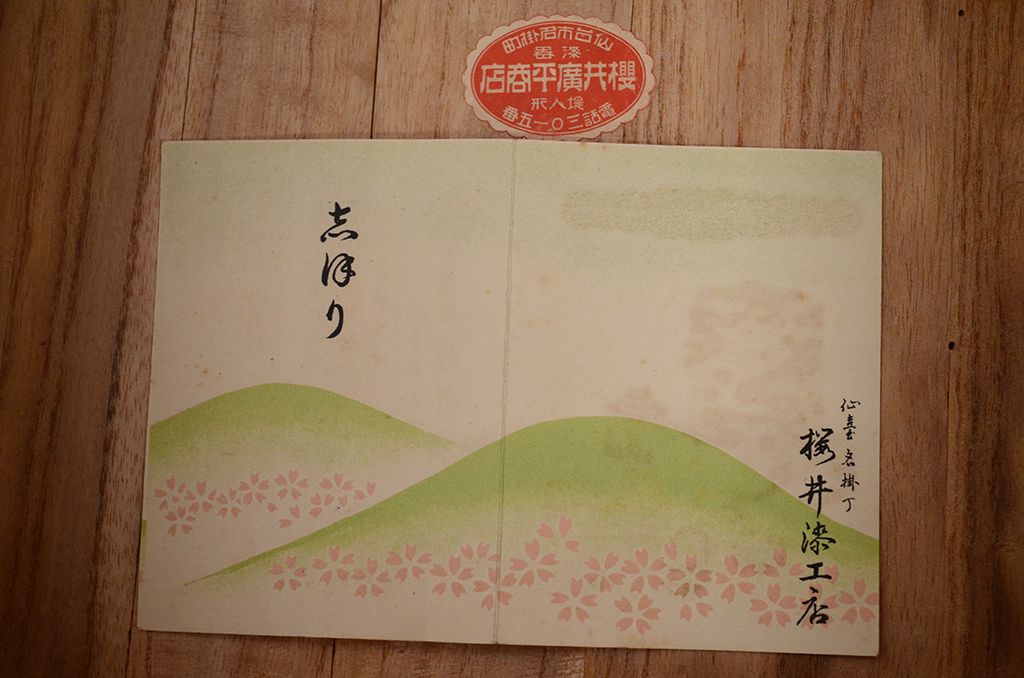 仙台市名掛町
漆器
櫻井廣平商店
堤人形
電話三〇一五番
仙臺名掛丁
桜井漆工店
志ほり